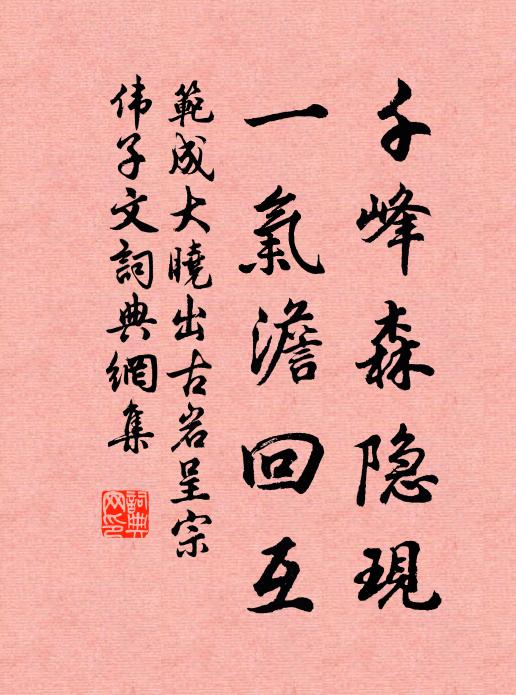 千峰森隐現
一氣澹回互
範成大曉出古岩呈宗
伟子文詞典網集
詞典网印